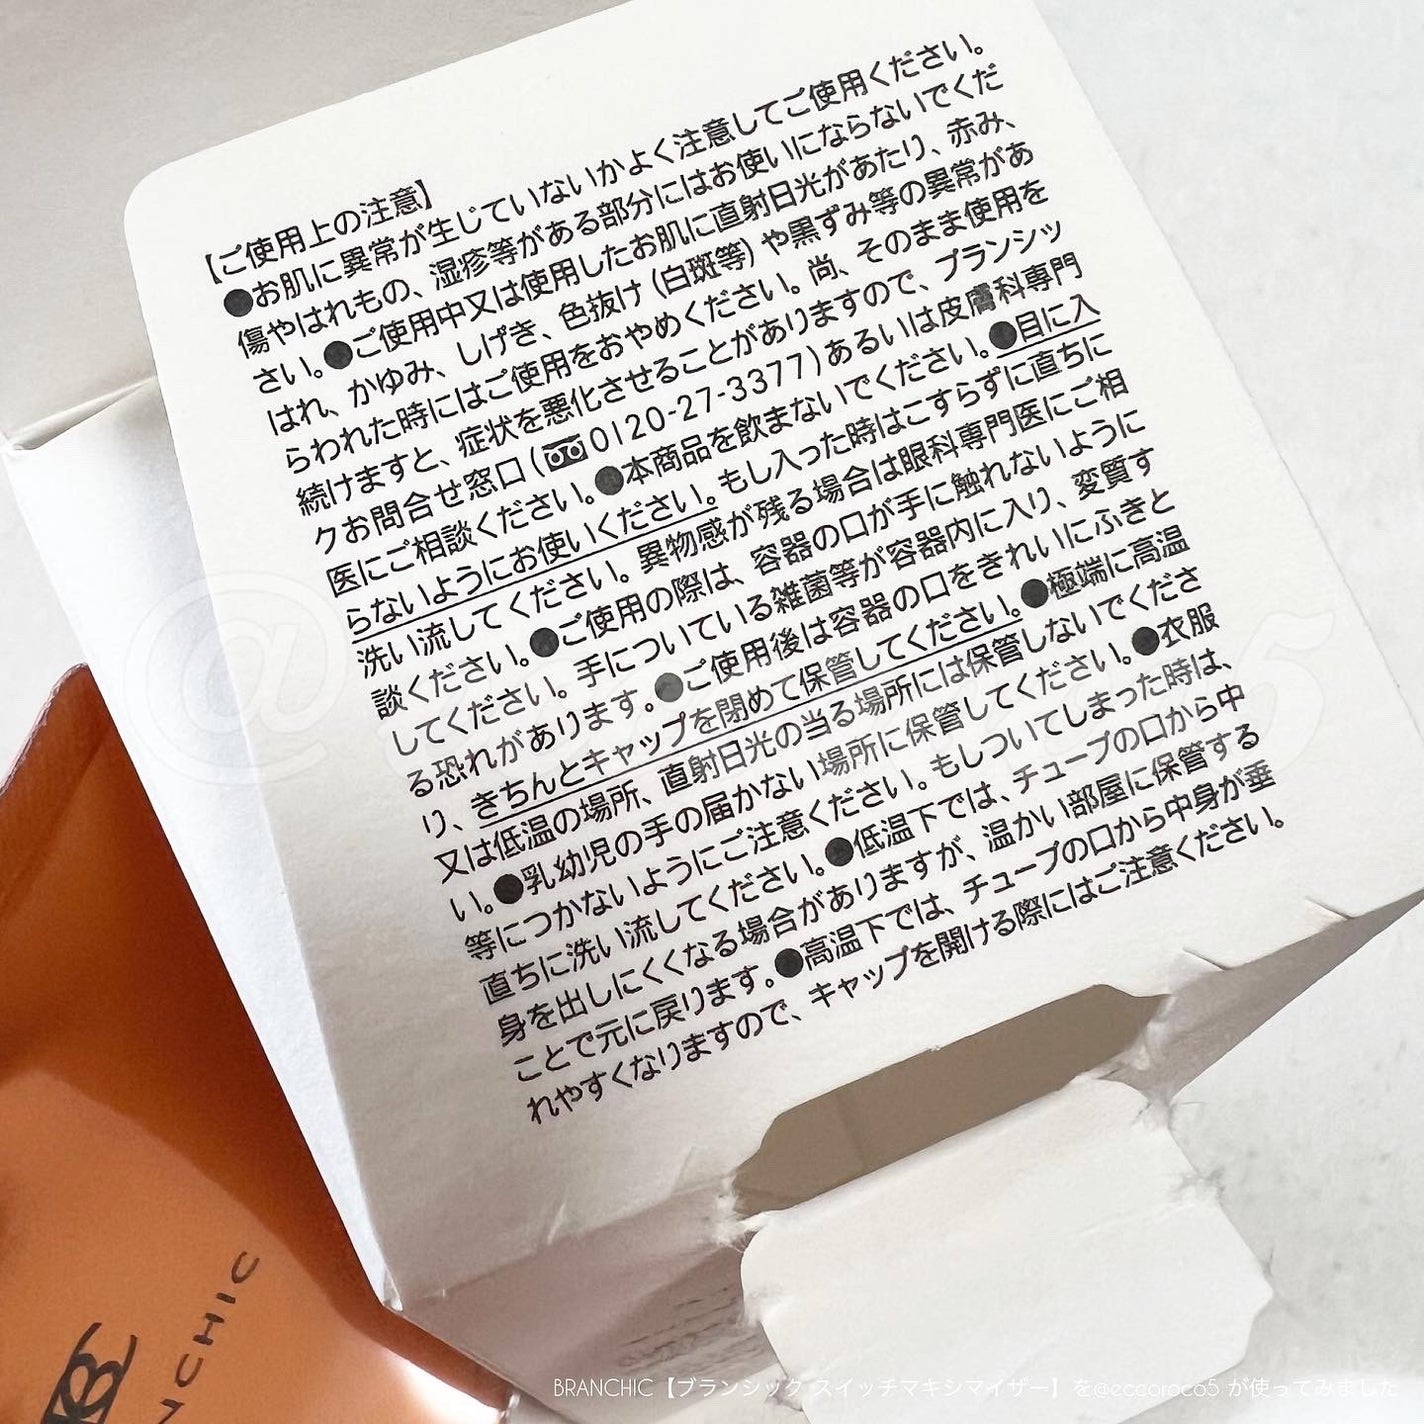 【ご使用上の注意】
●お肌に異常が生じていないかよく注意してご使用ください。
傷やはれもの、湿疹等がある部分にはお使いにならないでくだ
さい。●ご使用中又は使用したお肌に直射日光があたり、赤み、
はれ、かゆみ、しげき、色抜け(白斑等)や黒ずみ等の異常があ
らわれた時にはご使用をおやめください。尚、そのまま使用を
続けますと、症状を悪化させることがありますので、ブランシッ
クお問合せ窓口(0120-27-3377)あるいは皮膚科専門
医にご相談ください。●本商品を飲まないでください。●目に入
らないようにお使いください。もし入った時はこすらずに直ちに
洗い流してください。異物感が残る場合は眼科専門医にご相
談ください。●ご使用の際は、容器の口が手に触れないように
してください。手についている雑菌等が容器内に入り、変質す
る恐れがあります。●ご使用後は容器の口をきれいにふきと
り、きちんとキャップを閉めて保管してください。●極端に高温
又は低温の場所、直射日光の当る場所には保管しないでくださ
い。●乳幼児の手の届かない場所に保管してください。●衣服
等につかないようにご注意ください。もしついてしまった時は、
直ちに洗い流してください。●低温下では、チューブの口から中
身を出しにくくなる場合がありますが、温かい部屋に保管する
ことで元に戻ります。●高温下では、チューブの口から中身が垂
れやすくなりますので、キャップを開ける際にはご注意ください。
NCHIC
BRANCHIC【ブランシック スイッチマキシマイザー】を@eccoroco5 が使ってみました